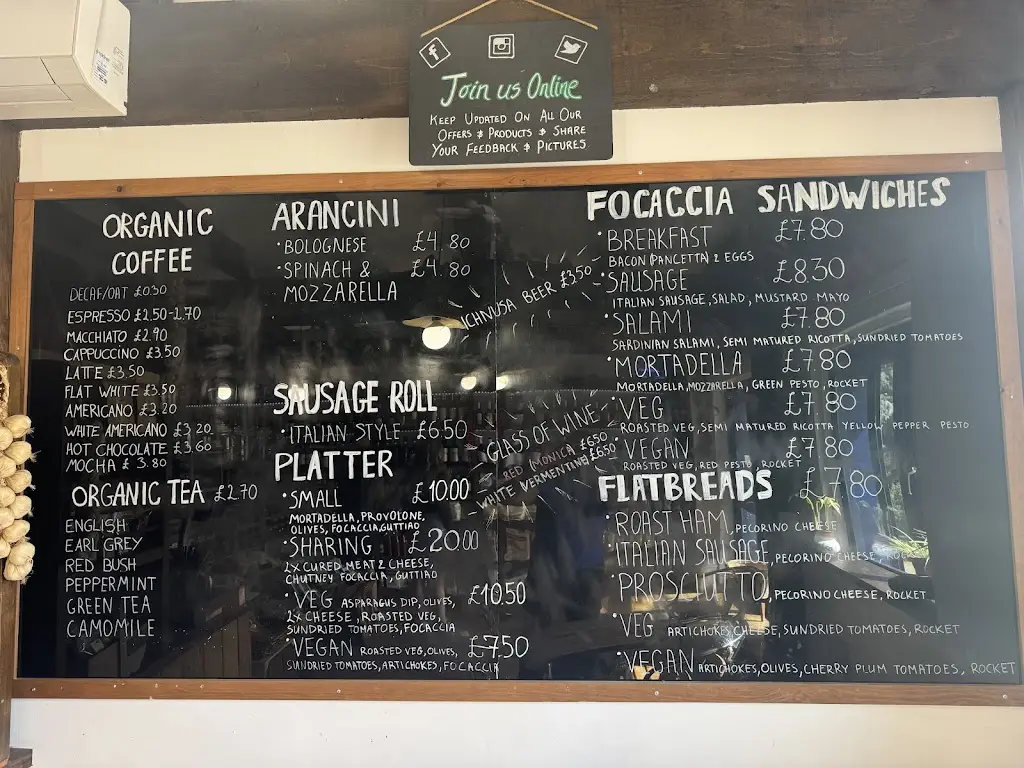 Join us Online
KEEP UPDATED ON ALL OUR
OFFERS & PRODUCTS & SHARE
YOUR FEEDBACK & PICTURES
ORGANIC
COFFEE
DECAF/OAT £0.50
ESPRESSO £2.50-2.70
MACCHIATO £2.90
CAPPUCCINO £3.50
LATTE £3.50
FLAT WHITE £3.50
AMERICANO £3.20
WHITE AMERICANO £3.20
HOT CHOCOLATE £3.60
MOCHA £3.80
ORGANIC TEA £2.70
ENGLISH
EARL GREY
RED BUSH
PEPPERMINT
GREEN TEA
CAMOMILE
ARANCINI
·BOLOGNESE £4.80
·SPINACH & £4.80
MOZZARELLA
ICHNUSA BEER £3.50
SAUSAGE ROLL
·ITALIAN STYLE £6.50
GLASS OF WINE
RED MONICA £6.50
WHITE VERMENTINO £6.50
PLATTER
·SMALL £10.00
MORTADELLA, PROVOLONE,
OLIVES, FOCACCIA, GUTTIAO
·SHARING £20.00
2X CURED MEAT & CHEESE,
CHUTNEY FOCACCIA, GUTTIAO
·VEG ASPARAGUS DIP, OLIVES, £10.50
2X CHEESE, ROASTED VEG,
SUNDRIED TOMATOES, FOCACCIA
·VEGAN ROASTED VEG, OLIVES, £7.50
SUNDRIED TOMATOES, ARTICHOKES, FOCACCIA
FOCACCIA SANDWICHES
·BREAKFAST £7.80
BACON (PANCETTA) 2 EGGS
·SAUSAGE £8.30
ITALIAN SAUSAGE, SALAD, MUSTARD MAYO
·SALAMI £7.80
SARDINIAN SALAMI, SEMI MATURED RICOTTA, SUNDRIED TOMATOES
·MORTADELLA £7.80
MORTADELLA, MOZZARELLA, GREEN PESTO, ROCKET
·VEG £7.80
ROASTED VEG, SEMI MATURED RICOTTA YELLOW PEPPER PESTO
·VEGAN £7.80
ROASTED VEG, RED PESTO, ROCKET
FLATBREADS £7.80
·ROAST HAM, PECORINO CHEESE
·ITALIAN SAUSAGE, PECORINO CHEESE, ROCKET
·PROSCIUTTO, PECORINO CHEESE, ROCKET
·VEG ARTICHOKES, CHEESE, SUNDRIED TOMATOES, ROCKET
·VEGAN ARTICHOKES, OLIVES, CHERRY PLUM TOMATOES, ROCKET